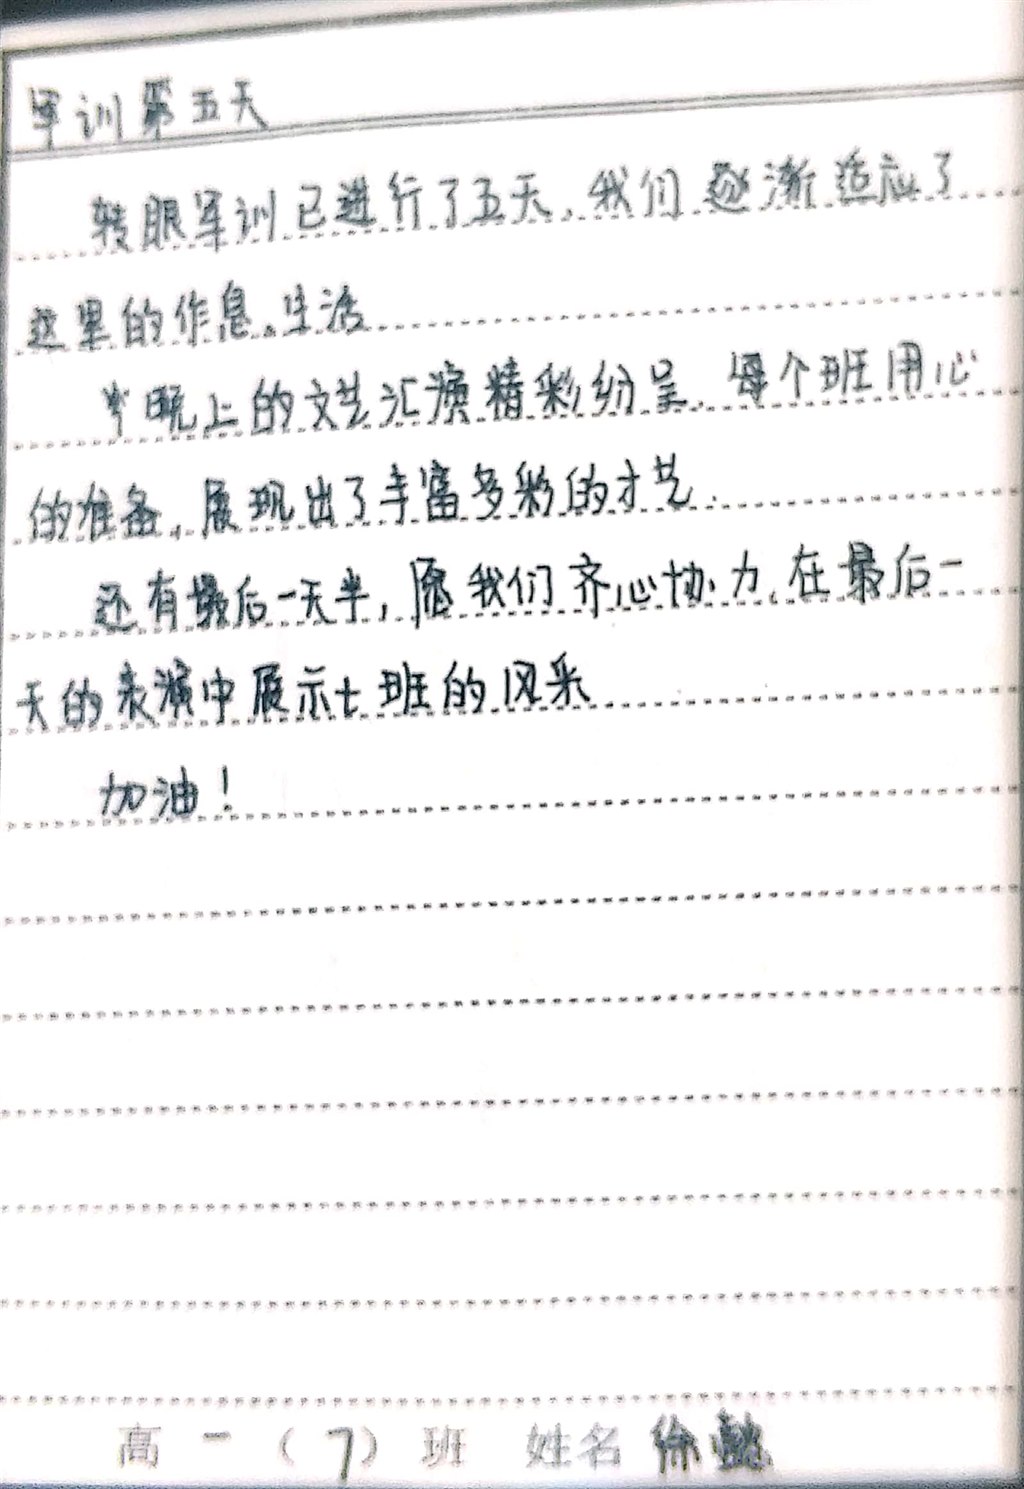 军训第五天
转眼军训已进行了五天,我们逐渐适应了
这里的作息、生活
晚上的文艺汇演精彩纷呈,每个班用心
的准备,展现出了丰富多彩的才艺.
还有最后一天半,愿我们齐心协力,在最后一
天的表演中展示七班的风采
加油!
高一(7)班 姓名 徐懿